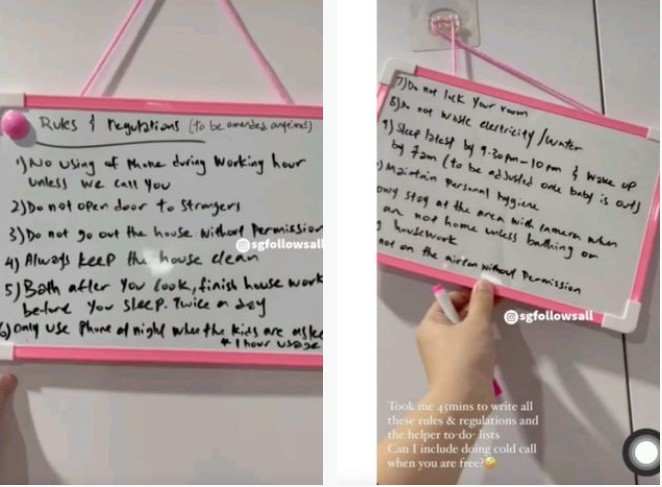 Rules & regulations (to be amended anytime)
1) No using of phone during working hour
unless we call you
2) Do not open door to strangers
3) Do not go out the house without permission
4) Always keep the house clean
5) Bath after you cook, finish house work
before you sleep. Twice a day
6) Only use phone at night when the kids are
* 1 hour usage
@sgfollowsall
7) Do not lock your room
8) Do not waste electricity / water
9) Sleep latest by 9.30pm - 10pm & wake up
by 7am (to be adjusted once baby is out)
) Maintain personal hygiene
only stay at the area with camera when
are not home unless bathing or
housework
not on the aircon without permission
@sgfollowsall
Took me 45mins to write all
these rules & regulations and
the helper to-do- lists
Can I include doing cold call
when you are free?🤣